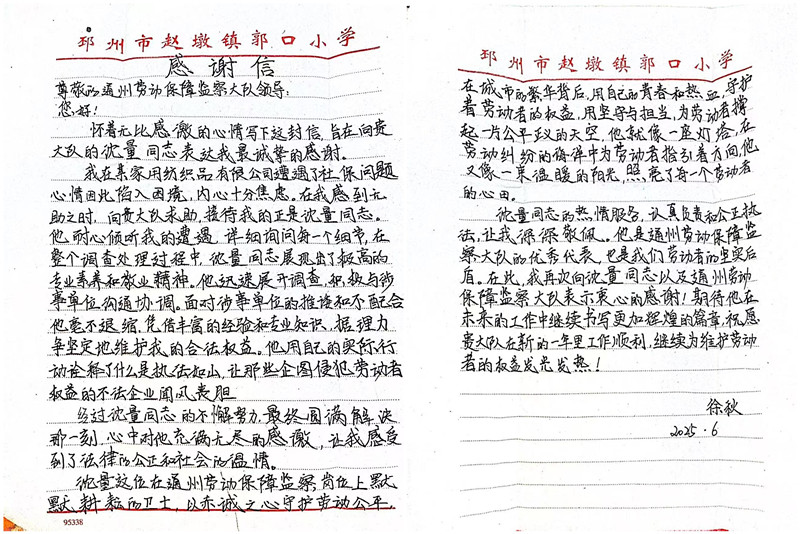 邳州市赵墩镇郭口小学
感谢信
尊敬的通州劳动保障监察大队领导:
您好!
怀着无比感激的心情写下这封信,旨在向贵
大队的沈量同志表达我最诚挚的感谢。
我在某家用纺织品有限公司遭遇了社保问题
心情因此陷入困境,内心十分焦虑。在我感到无
助之时,向贵大队求助,接待我的正是沈量同志。
他耐心倾听我的遭遇,详细询问每一个细节,在
整个调查处理过程中,沈量同志展现出了极高的
专业素养和敬业精神。他迅速展开调查,积极与涉
事单位沟通协调。面对涉事单位的推诿和不配合
他毫不退缩,凭借丰富的经验和专业知识,据理力
争坚定地维护我的合法权益。他用自己的实际行
动诠释了什么是执法如山,让那些企图侵犯劳动者
权益的不法企业闻风丧胆
经过沈量同志的不懈努力,最终圆满解决
那一刻,心中对他充满无尽的感激,让我感受
到了法律的公正和社会的温情。
沈量这位在通州劳动保障监察岗位上默
默耕耘的卫士,以赤诚之心守护劳动公平,
95338
邳州市赵墩镇郭口小学
在城市的繁华背后,用自己的青春和热血,守护
着劳动者的权益,用坚守与担当,为劳动者撑
起一片公平正义的天空,他就像一座灯塔,在
劳动纠纷的海洋中为劳动者指引着方向,他
又像一束温暖的阳光,照亮了每一个劳动者
的心田。
沈量同志的热情服务,认真负责和公正执
法,让我深深敬佩。他是通州劳动保障监
察大队的优秀代表,也是我们劳动者的坚实后
盾。在此,我再次向沈量同志以及通州劳动
保障监察大队表示衷心的感谢!期待他在
未来的工作中继续书写更加辉煌的篇章,祝愿
贵大队在新的一年里工作顺利,继续为维护劳动
者的权益发光发热!
徐秋
2025.6